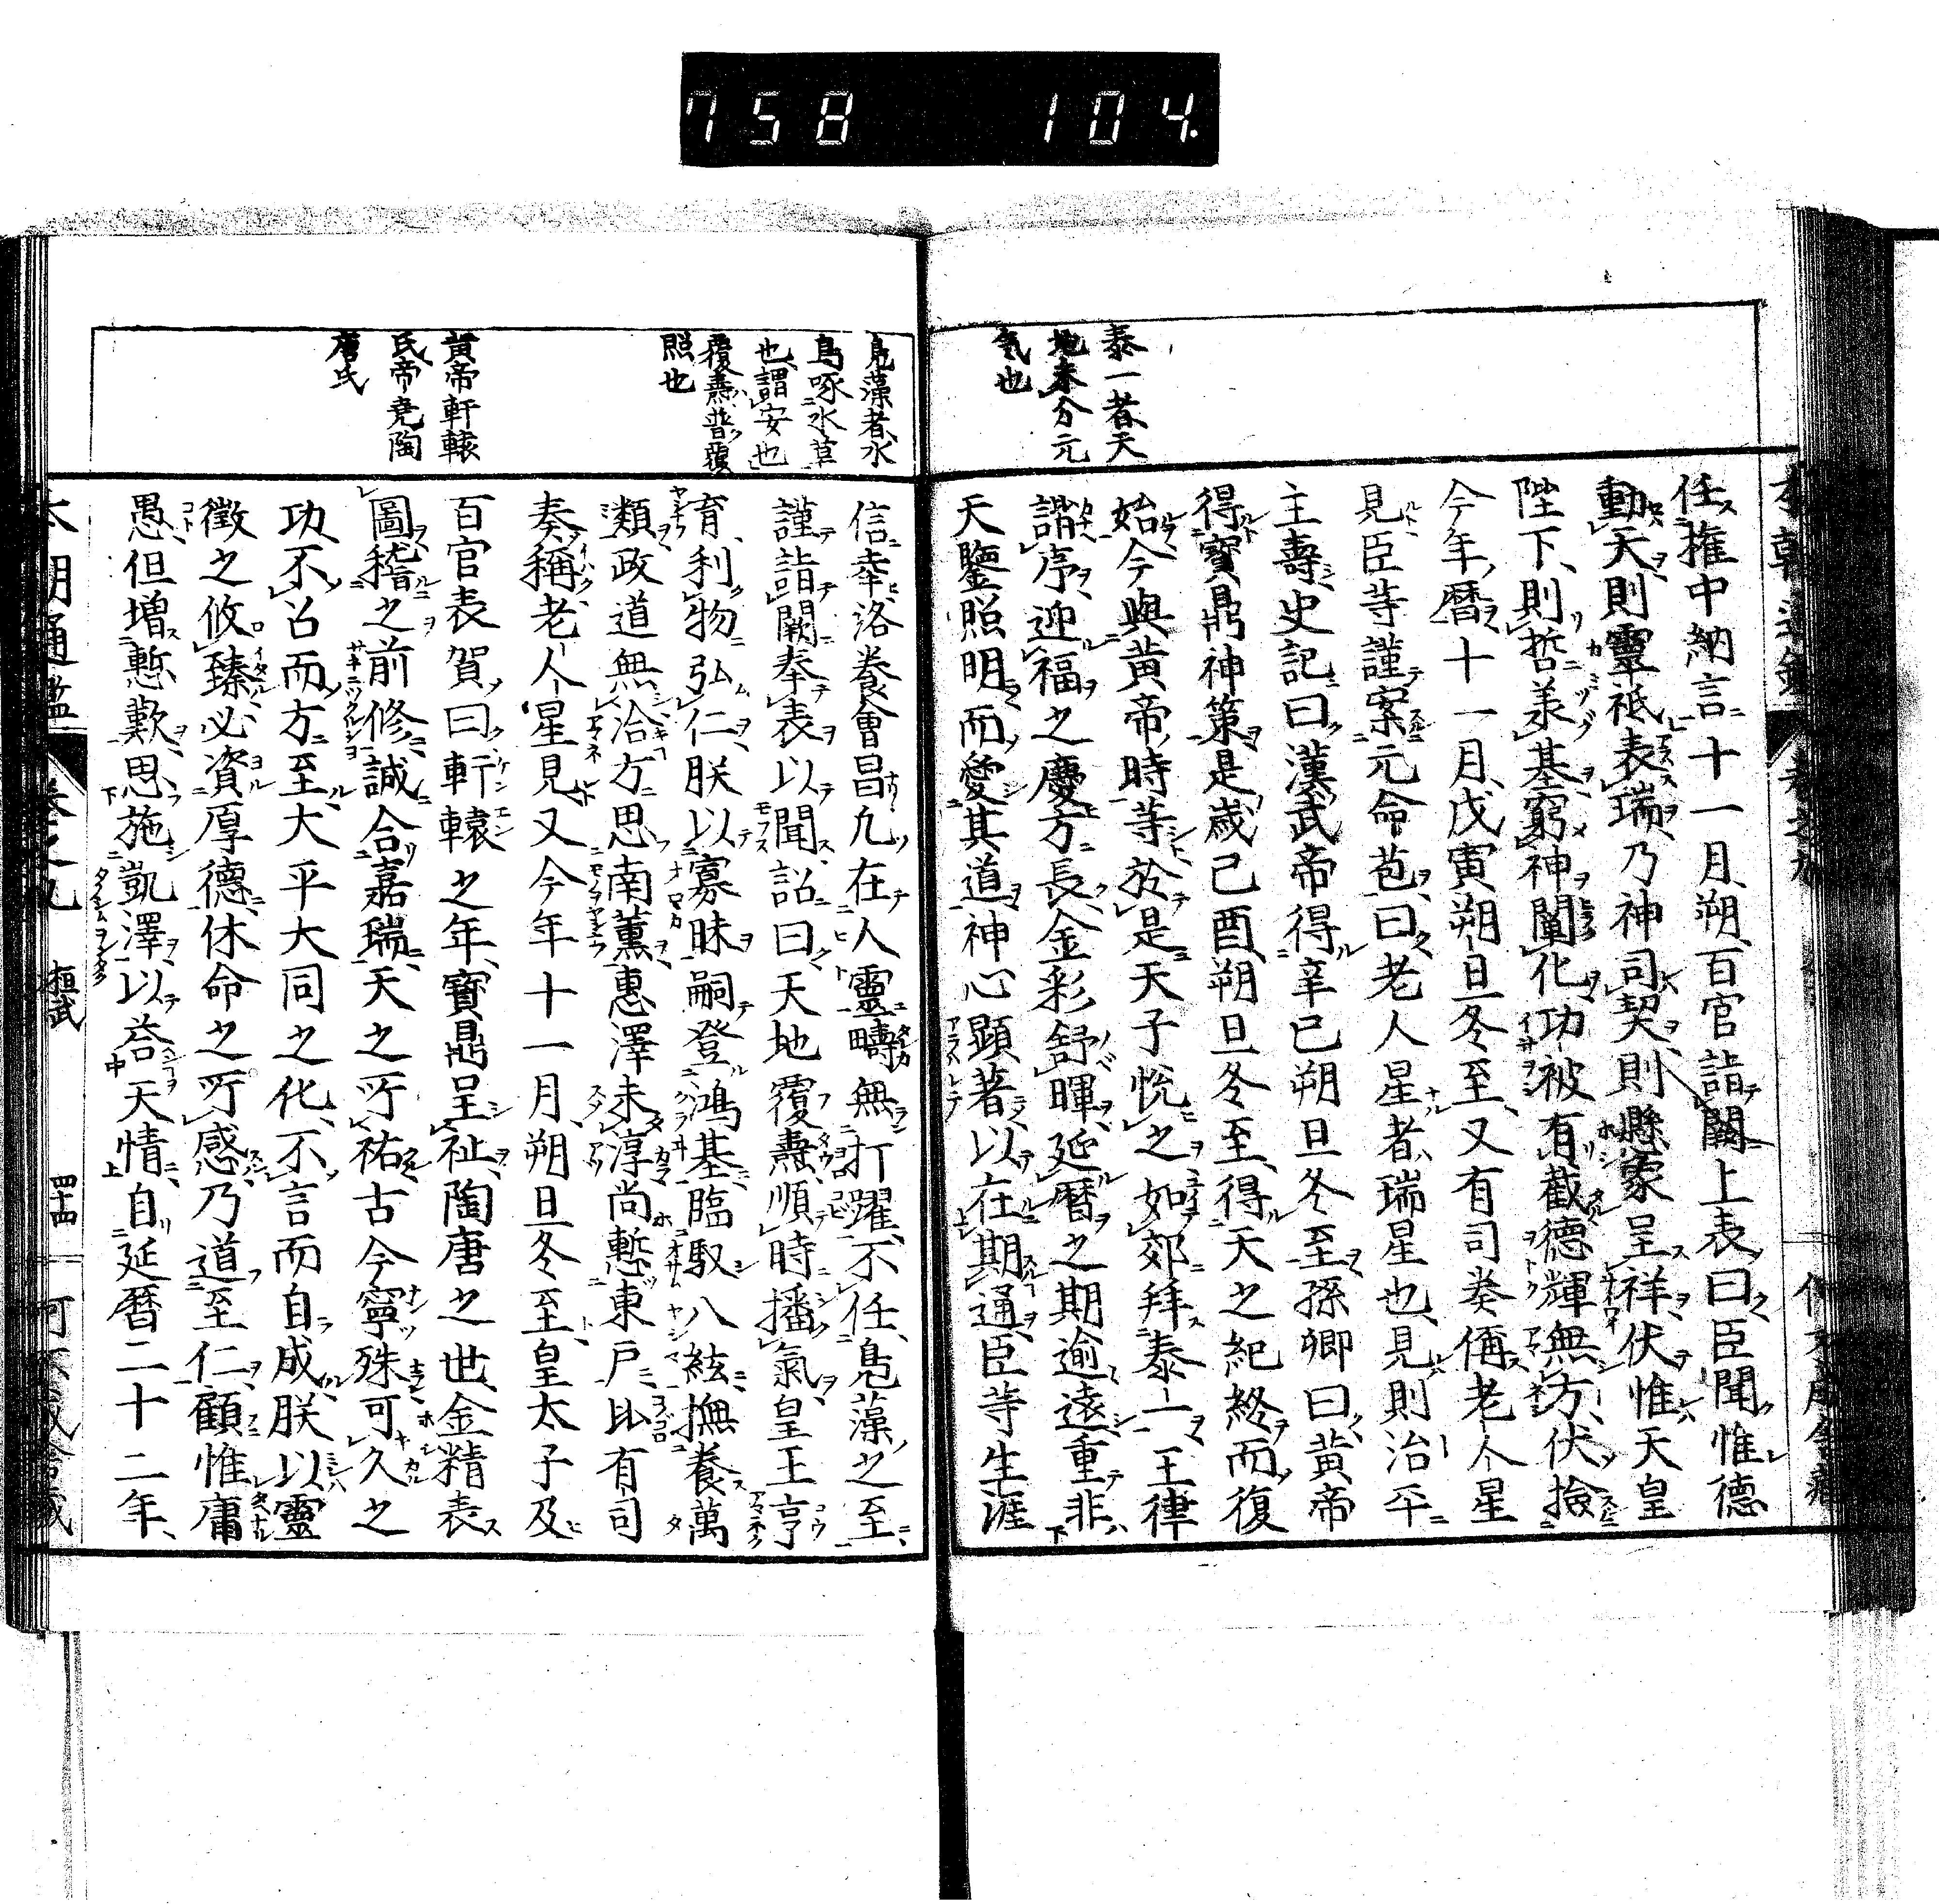 758 104.
泰一者天
地未分元
気也
任権中納言十一月朔百官詣闕上表曰臣聞惟德
動天則靈祇表瑞乃神司契則懸象呈祥伏惟天皇
陛下則哲羕基窮神闡化功被有截德輝無方伏撿
今年曆十一月戊寅朔旦冬至又有司奏偁老人星
見臣等謹案元命苞曰老人星者瑞星也見則治平
主壽史記曰漢武帝得辛巳朔旦冬至孫卿曰黃帝
得寶鼎神策是歲己酉朔旦冬至得天之紀終而復
始今與黃帝時等於是天子悅之如郊拜泰一王律
諧序迎福之慶方長金彩舒暉延曆之期逾遠重非
天鑒照明而愛其道神心顯著以在期通臣等生涯
鳧藻者水
鳥啄水草
也謂安也
覆燾普覆
照也
黃帝軒轅
氏帝尭陶
唐氏
信幸洛養會昌凢在人靈疇無抃躍不任鳧藻之至
謹詣闕奉表以聞詔曰天地覆燾順時播氣皇王亨
育利物弘仁朕以寡昧嗣登鴻基臨馭八紘撫養萬
類政道無洽方思南薰惠澤未淳尚慙東戶比有司
奏稱老人星見又今年十一月朔旦冬至皇太子及
百官表賀曰軒轅之年寶鼎呈祉陶唐之世金精表
圖稽之前修誠合嘉瑞天之所祐古今寧殊可久之
功不召而方至大平大同之化不言而自成朕以靈
徵之攸臻必資厚德休命之所感乃道至仁顧惟庸
愚但増慙歎思施凱澤以荅天情自延曆二十二年
本朝通鑑 卷之九 桓武 四十四